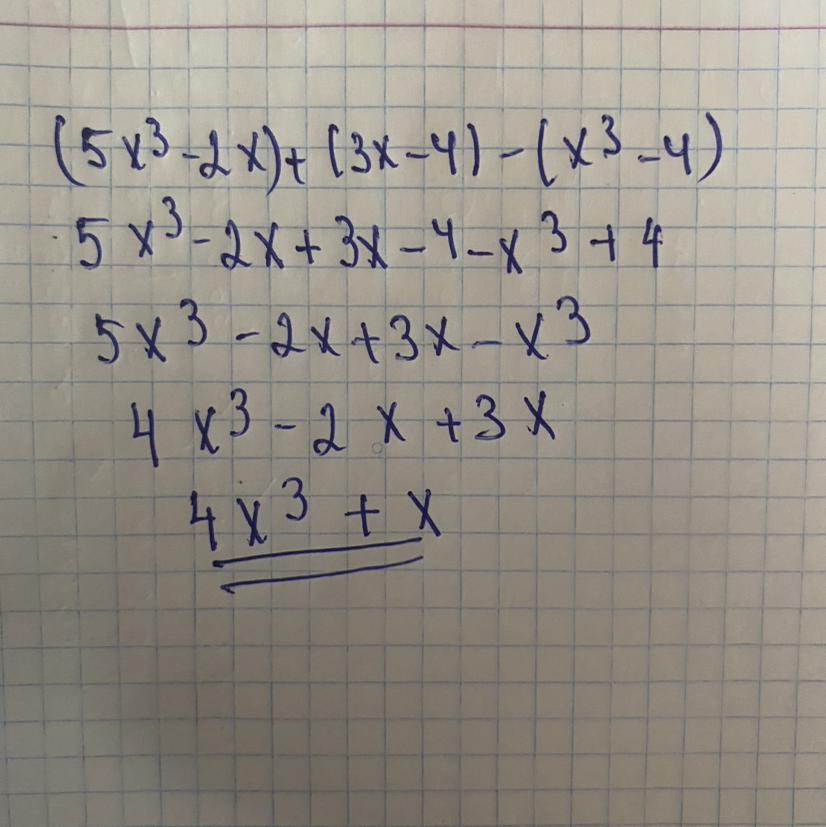 (5x³-2x)+(3x-4)-(x³-4)
5x³-2x+3x-4-x³+4
5x³-2x+3x-x³
4x³-2x+3x
4x³+x